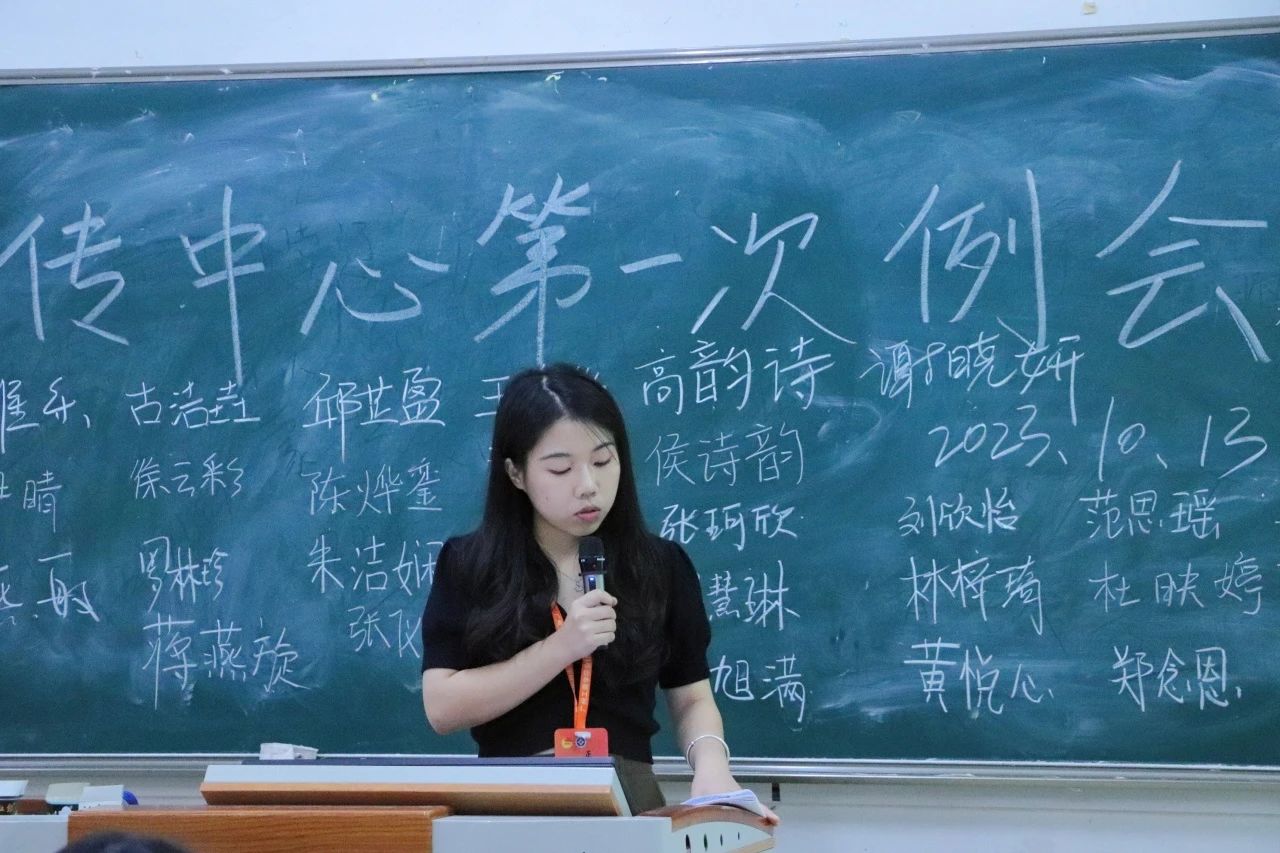 传中心第一次例会
古浩垚 邱世盈 王 高韵诗 谢晓妍
徐云彩 陈烨銮 侯诗韵 2023、10、13
晴 张珂欣 刘欣怡 范思瑶
敏 罗林珍 朱洁娴 慧琳 林梓琦 杜映婷
蒋燕旋 张 旭满 黄悦心 郑念恩